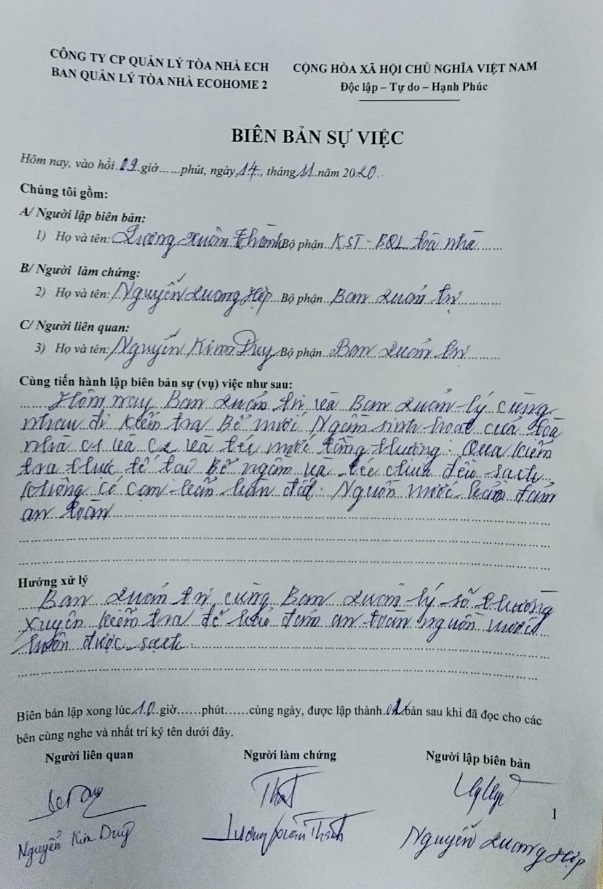 CÔNG TY CP QUẢN LÝ TÒA NHÀ ECH
BAN QUẢN LÝ TÒA NHÀ ECOHOME 2
CỘNG HÒA XÃ HỘI CHỦ NGHĨA VIỆT NAM
Độc lập – Tự do – Hạnh Phúc
BIÊN BẢN SỰ VIỆC
Hôm nay, vào hồi 09 giờ......phút, ngày 14, tháng 11 năm 2020.
Chúng tôi gồm:
A/ Người lập biên bản:
1) Họ và tên: Lương Xuân Thành Bộ phận KST - BQL toà nhà
B/ Người làm chứng:
2) Họ và tên: Nguyễn Lương Hiệp Bộ phận Ban Quản trị
C/ Người liên quan:
3) Họ và tên: Nguyễn Kim Duy Bộ phận Ban Quản trị
Cùng tiến hành lập biên bản sự (vụ) việc như sau:
Hôm nay Ban Quản trị và Ban Quản lý cùng
nhau đi kiểm tra Bể nước Ngầm sinh hoạt của toà
nhà C1 và C2 và téc nước tầng thượng. Qua kiểm
tra thực tế tại Bể ngầm và téc chứa đều sạch
không có cặn bẩn lắn đất. Nguồn nước bảo đảm
an toàn
Hướng xử lý
Ban Quản trị cùng Ban Quản lý sẽ thường
xuyên kiểm tra để bảo đảm an toàn nguồn nước
luôn được sạch
Biên bản lập xong lúc 10 giờ......phút......cùng ngày, được lập thành 02 bản sau khi đã đọc cho các
bên cùng nghe và nhất trí ký tên dưới đây.
Người liên quan Người làm chứng Người lập biên bản
1
Nguyễn Kim Duy Lương Xuân Thành Nguyễn Lương Hiệp